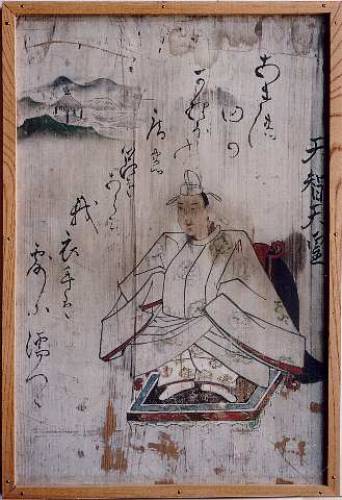 天智天皇
あきの
田の
かりほの
庵の
苫をあらみ
我
衣手は
露に濡つゝ